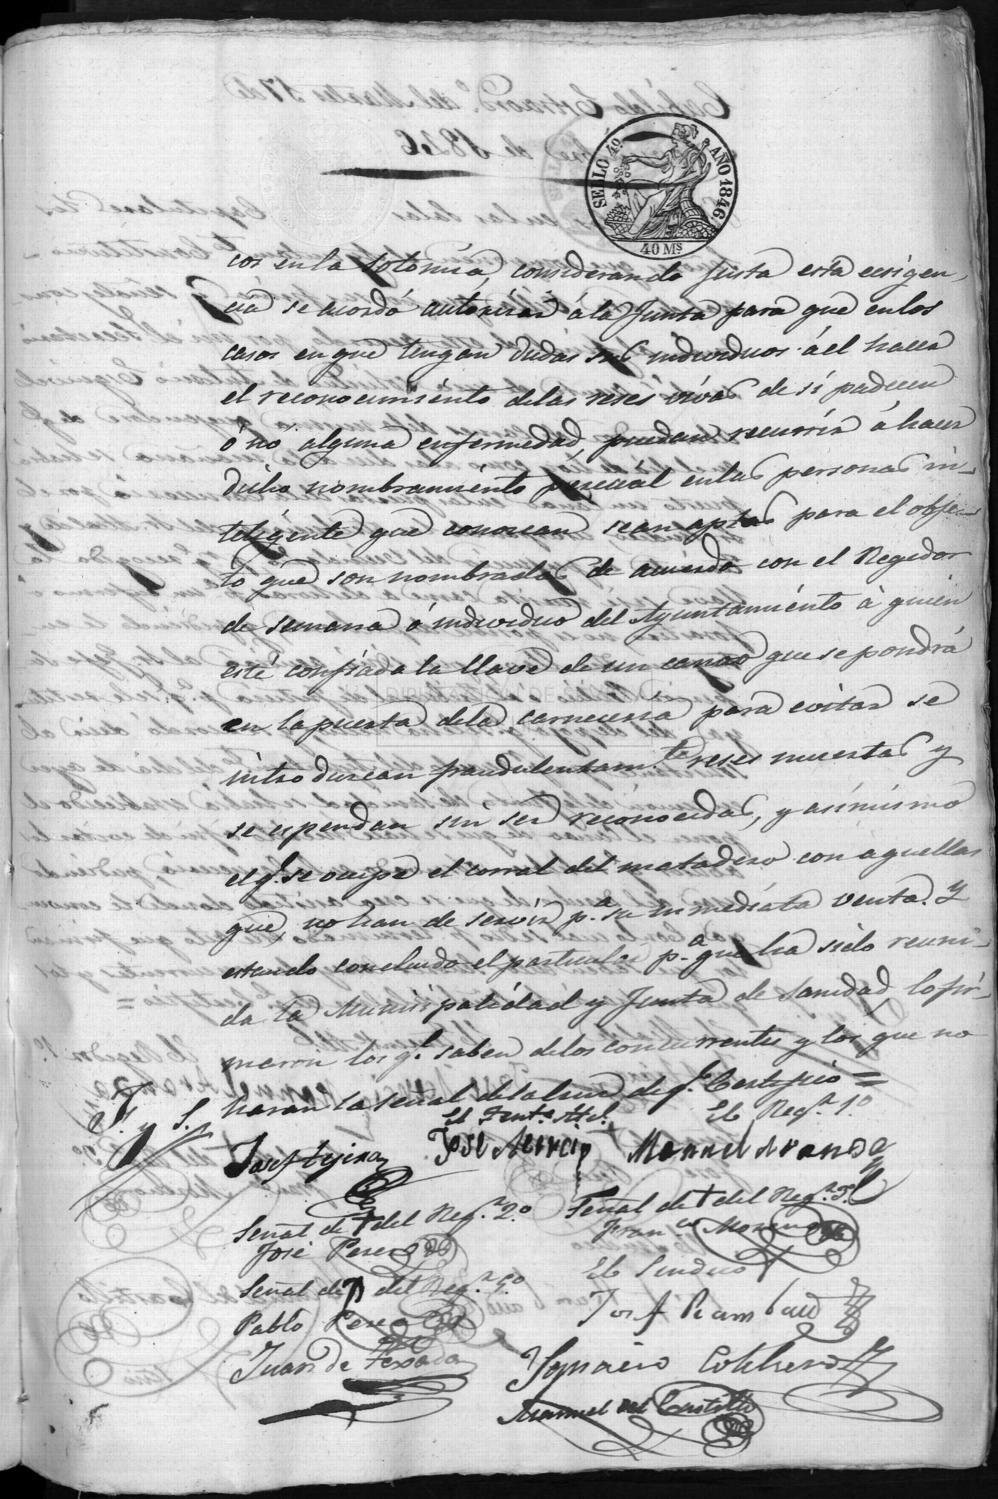 SELLO 4º AÑO 1846.
40 Ms
cos en la sotomia considerando justa esta ecsigen-
cia se acordó autorizar á la Junta para que en los
casos en que tengan dudas sus individuos al hacer
el reconocimiento de las reses vivas de si padecen
ó nó alguna enfermedad, puedan recurrir á hacer
dicho nombramiento pericial en las personas in-
teligente que conozcan sean aptas para el obje-
to que son nombradas de acuerdo con el Regidor
de semana ó individuo del Ayuntamiento á quien
esté confiada la llave de un canao que se pondrá
en la puerta de la carneceria para evitar se
introduzcan fraudulentam.te reses muertas y
se espendan sin ser reconocidas, y asimismo
el q.e se ocupe el corral del matadero con aquellas
que no han de servir p.a su inmediata venta. Y
estando concluido el particular p.a que ha sido reuni-
da la Municipalidad y Junta de Sanidad, lo fir-
maron los q.e saben de los concurrentes y los que no
haran la señal de la cruz de q.e Certifico =
El Tent.e Alc.e El Reg.r 1.º
José Tejera Manuel Aranda
Señal de + del Reg.r 2.º Señal de + del Reg.r 3.º
José Perez Fran.co Moreno
Señal de + del Reg.r 5.º El Sindico
Pablo Perez Josef Rambaud
Juan de Texada Ygnacio
Manuel del Castillo